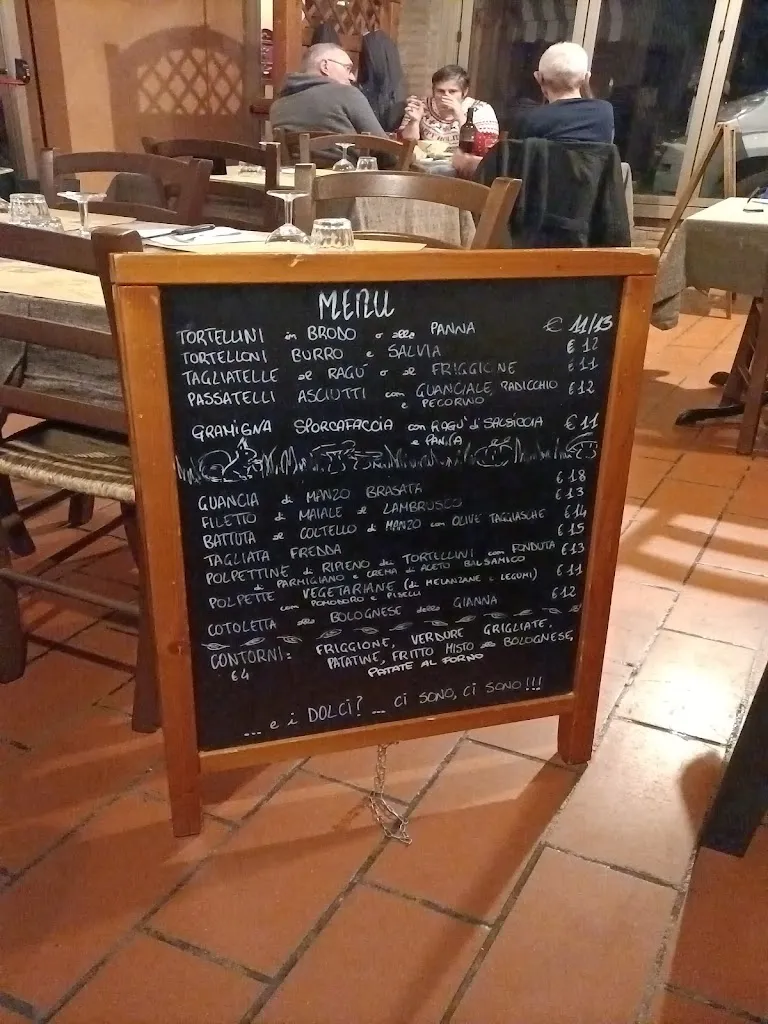 MENU
TORTELLINI in BRODO o alla PANNA € 11/13
TORTELLONI BURRO e SALVIA € 12
TAGLIATELLE al RAGÚ o al FRIGGIONE € 11
PASSATELLI ASCIUTTI con GUANCIALE RADICCHIO € 12
e PECORINO
GRAMIGNA SPORCAFACCIA con RAGU' di SALSICCIA € 11
e PANNA
GUANCIA di MANZO BRASATA € 18
FILETTO di MAIALE al LAMBRUSCO € 13
BATTUTA al COLTELLO di MANZO con OLIVE TAGGIASCHE € 14
TAGLIATA FREDDA € 15
POLPETTINE di RIPIENO dei TORTELLINI con FONDUTA € 13
di PARMIGIANO e CREMA di ACETO BALSAMICO
POLPETTE VEGETARIANE (di MELANZANE e LEGUMI) € 11
con POMODORO e PISELLI
COTOLETTA alla BOLOGNESE della GIANNA € 12
CONTORNI: FRIGGIONE, VERDURE GRIGLIATE,
€4 PATATINE, FRITTO MISTO alla BOLOGNESE,
PATATE AL FORNO
... e i DOLCI? ... CI SONO, CI SONO !!!